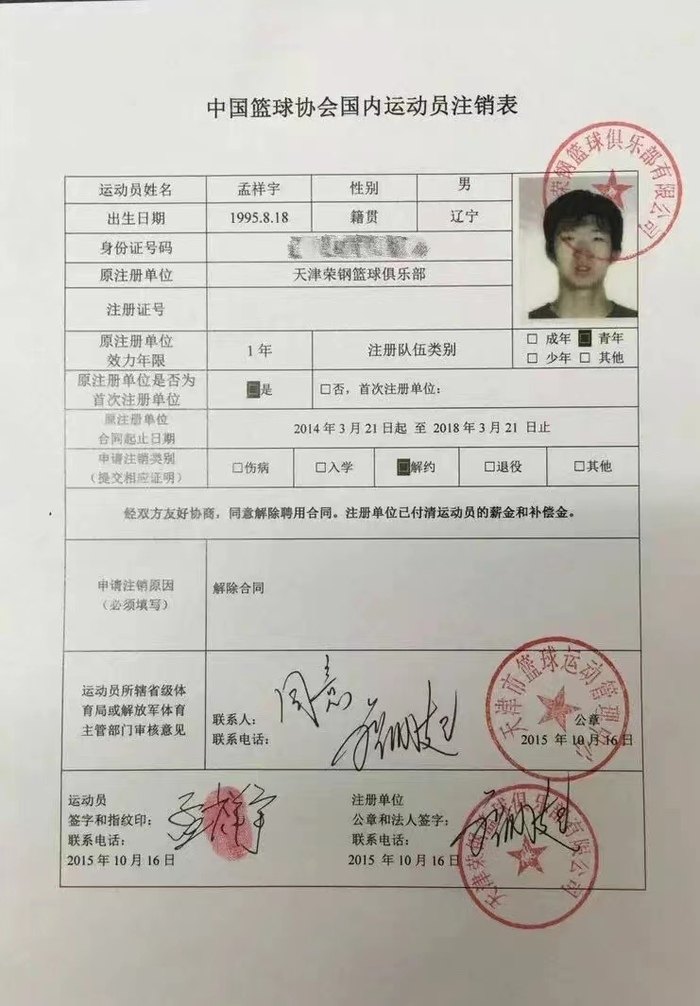 中国篮球协会国内运动员注销表
运动员姓名 孟祥宇 性别 男
出生日期 1995.8.18 籍贯 辽宁
身份证号码
原注册单位 天津荣钢篮球俱乐部
注册证号
原注册单位
效力年限 1 年 注册队伍类别 □ 成年 ■ 青年
□ 少年 □ 其他
原注册单位是否为
首次注册单位 ■是 □否，首次注册单位：
原注册单位
合同起止日期 2014 年 3 月 21 日起 至 2018 年 3 月 21 日止
申请注销类别
(提交相应证明) □伤病 □入学 ■解约 □退役 □其他
经双方友好协商，同意解除聘用合同。注册单位已付清运动员的薪金和补偿金。
申请注销原因
（必须填写） 解除合同
运动员所辖省级体
育局或解放军体育
主管部门审核意见
同意
联系人：
联系电话：
公章
2015 年 10 月 16 日
运动员
签字和指纹印：孟祥宇
联系电话：
2015 年 10 月 16 日
注册单位
公章和法人签字：
联系电话：
2015 年 10 月 16 日
荣钢篮球俱乐部有限公司
天津市篮球运动管理中心
天津荣钢篮球俱乐部有限公司